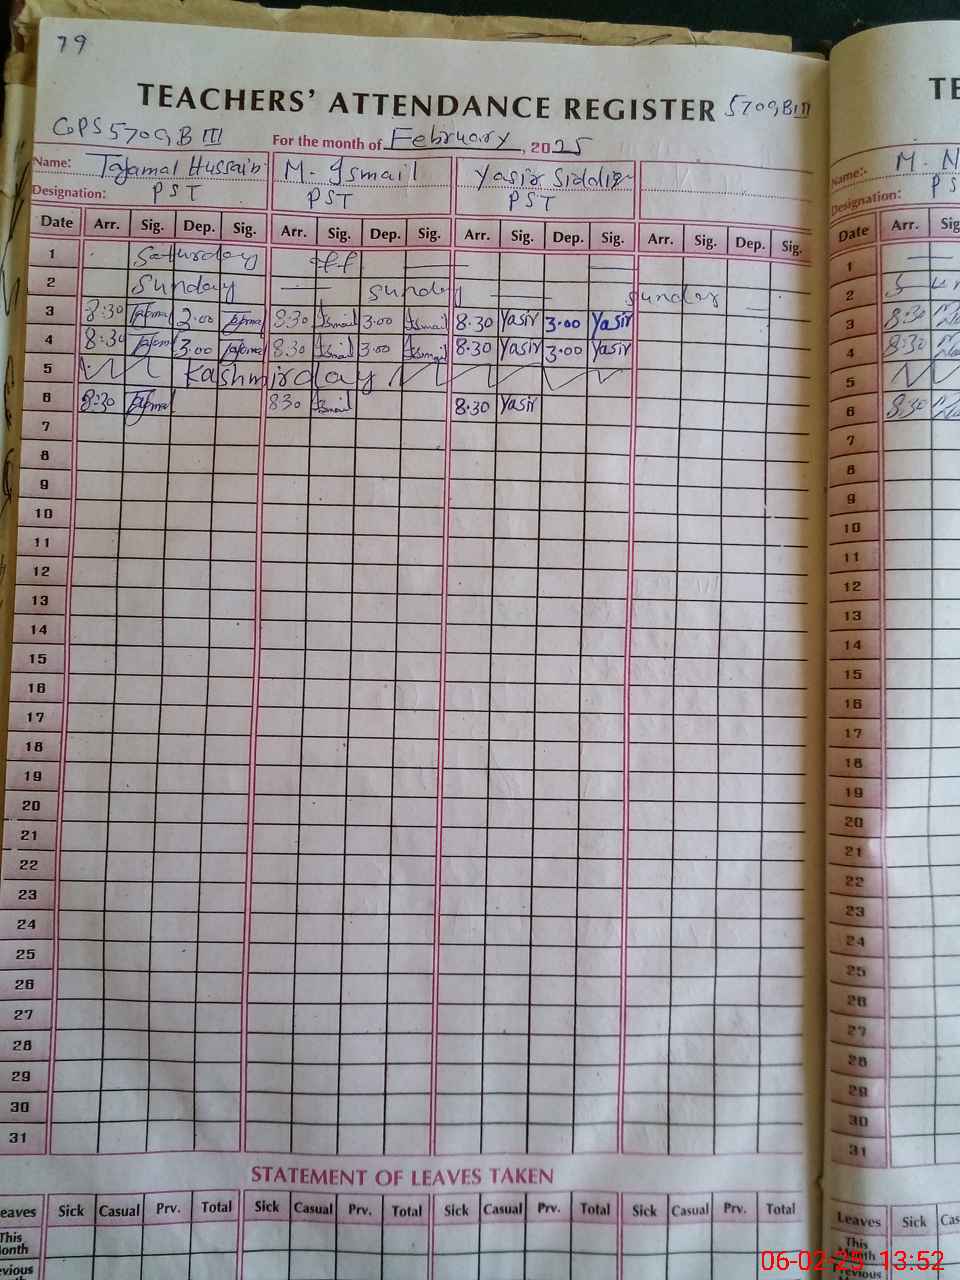 79
TEACHERS' ATTENDANCE REGISTER 570GBIII
GPS 570G,B III For the month of February, 2025
Name: Tajamal Hussain M. Ismail Yasir Siddiq
Designation: PST PST PST
Date Arr. Sig. Dep. Sig. Arr. Sig. Dep. Sig. Arr. Sig. Dep. Sig. Arr. Sig. Dep. Sig.
1 Saturday off
2 Sunday Sunday Sunday
3 8:30 Tajamal 3.00 Tajamal 8:30 Ismail 3.00 Ismail 8.30 Yasir 3.00 Yasir
4 8:30 Tajamal 3.00 Tajamal 8:30 Ismail 3.00 Ismail 8.30 Yasir 3.00 Yasir
5 Kashmir day
6 8:30 Tajamal 830 Ismail 8.30 Yasir
7
8
9
10
11
12
13
14
15
16
17
18
19
20
21
22
23
24
25
26
27
28
29
30
31
STATEMENT OF LEAVES TAKEN
eaves Sick Casual Prv. Total Sick Casual Prv. Total Sick Casual Prv. Total Sick Casual Prv. Total
This
onth
evious
TE
Name:- M. N
Designation: PS
Date Arr. Sig
1
2
3 8:30
4 8:30
5
6 8:30
7
8
9
10
11
12
13
14
15
16
17
18
19
20
21
22
23
24
25
26
27
28
29
30
31
Leaves Sick Cas
This
Month
Previous
06-02-25 13:52